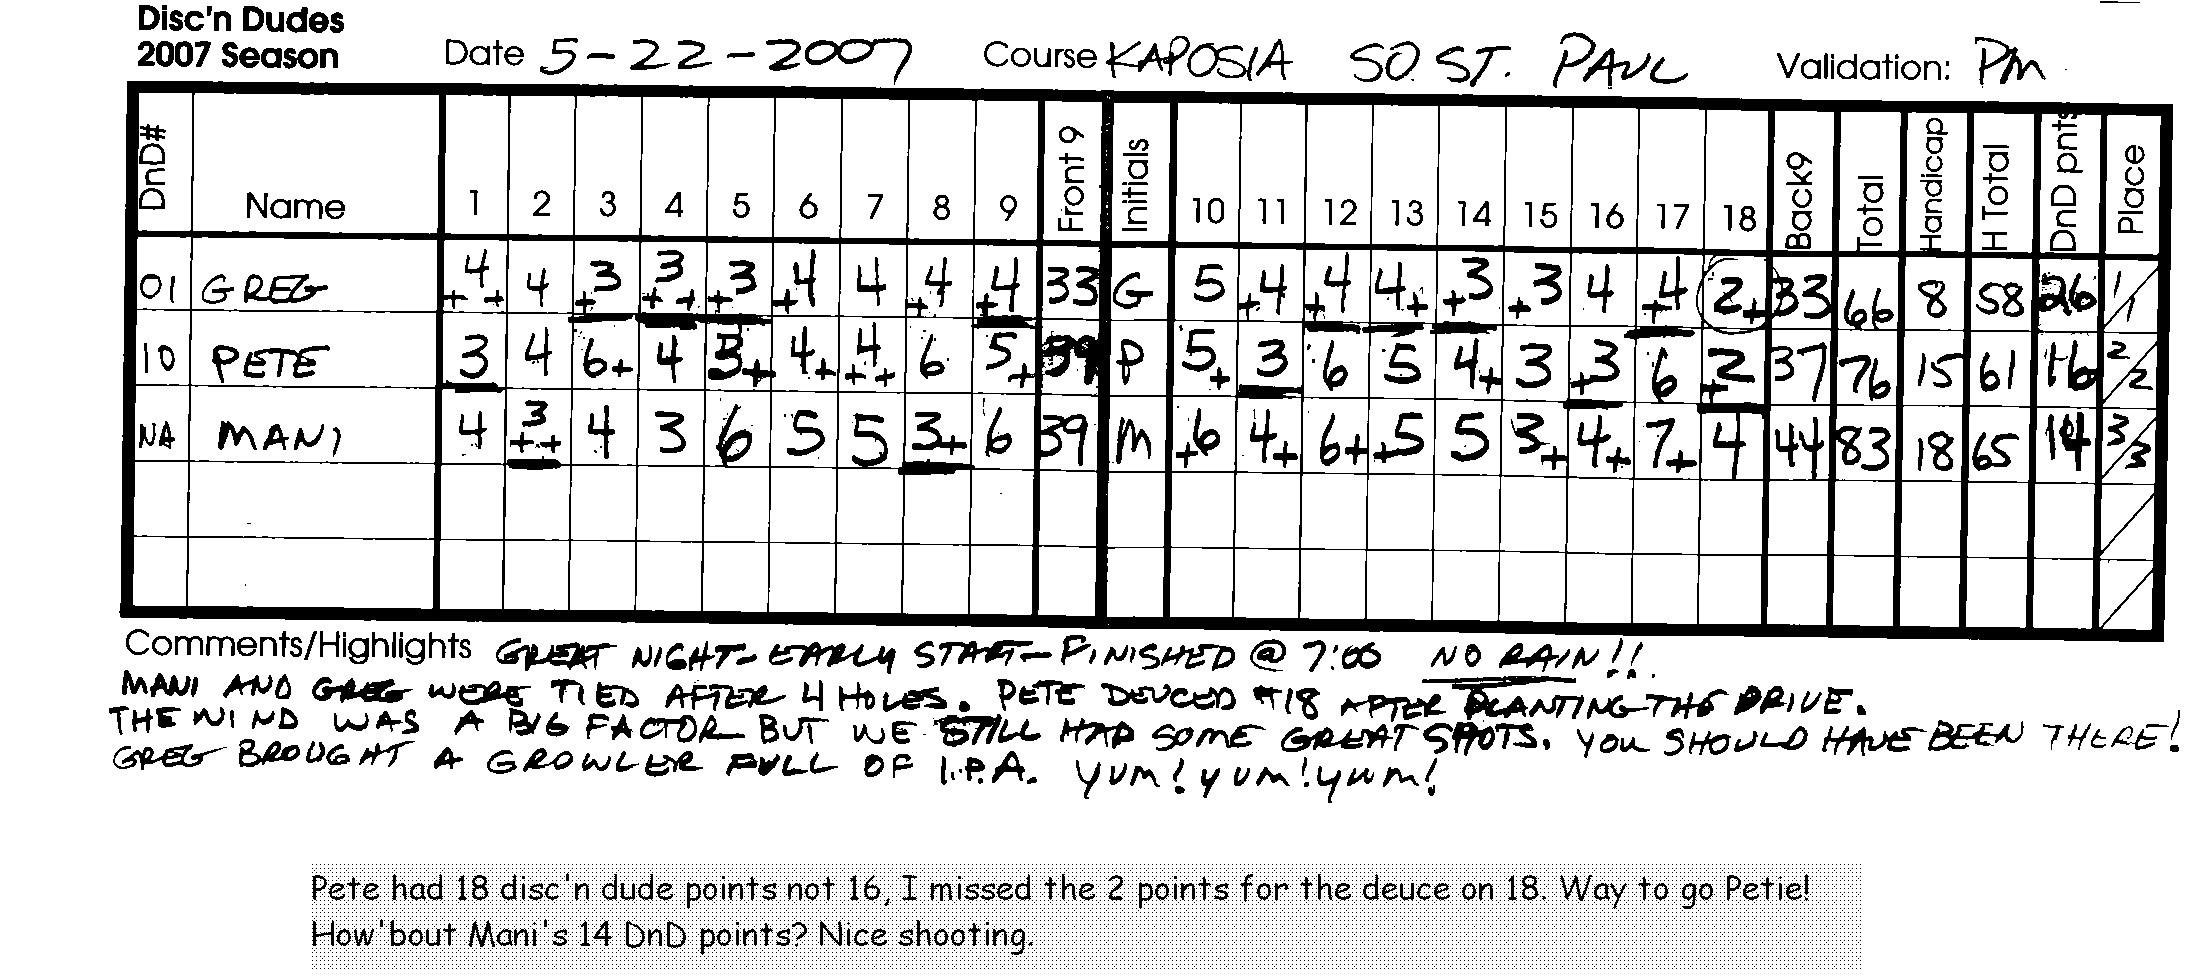 Disc'n Dudes
2007 Season Date 5-22-2007 Course KAPOSIA SO. ST. PAUL Validation: PM
DnD# Name 1 2 3 4 5 6 7 8 9 Front 9 Initials 10 11 12 13 14 15 16 17 18 Back9 Total Handicap H Total DnD pnts Place
01 GREG +4+ 4 +3 +3+ +3 +4 4 +4 +4 33 G 5 +4 +4 4+ +3 +3 4 +4 2+ 33 66 8 58 26 1/1
10 PETE 3 4 6+ 4 3+ 4+ 4++ 6 5+ 39 P 5+ 3 6 5 4+ 3 +3 6 +2 37 76 15 61 16 2/2
NA MANI 4 3++ 4 3 6 5 5 3+ 6 39 M +6 4+ 6+ +5 5 3+ 4+ 7+ 4 44 83 18 65 14 3/3
Comments/Highlights GREAT NIGHT- EARLY START- FINISHED @ 7:00 NO RAIN!!
MANI AND GREG WERE TIED AFTER 4 HOLES. PETE DEUCED #18 AFTER PLANTING THE DRIVE.
THE WIND WAS A BIG FACTOR BUT WE STILL HAD SOME GREAT SHOTS. YOU SHOULD HAVE BEEN THERE!
GREG BROUGHT A GROWLER FULL OF I.P.A. YUM! YUM! YUM!
Pete had 18 disc'n dude points not 16, I missed the 2 points for the deuce on 18. Way to go Petie!
How'bout Mani's 14 DnD points? Nice shooting.